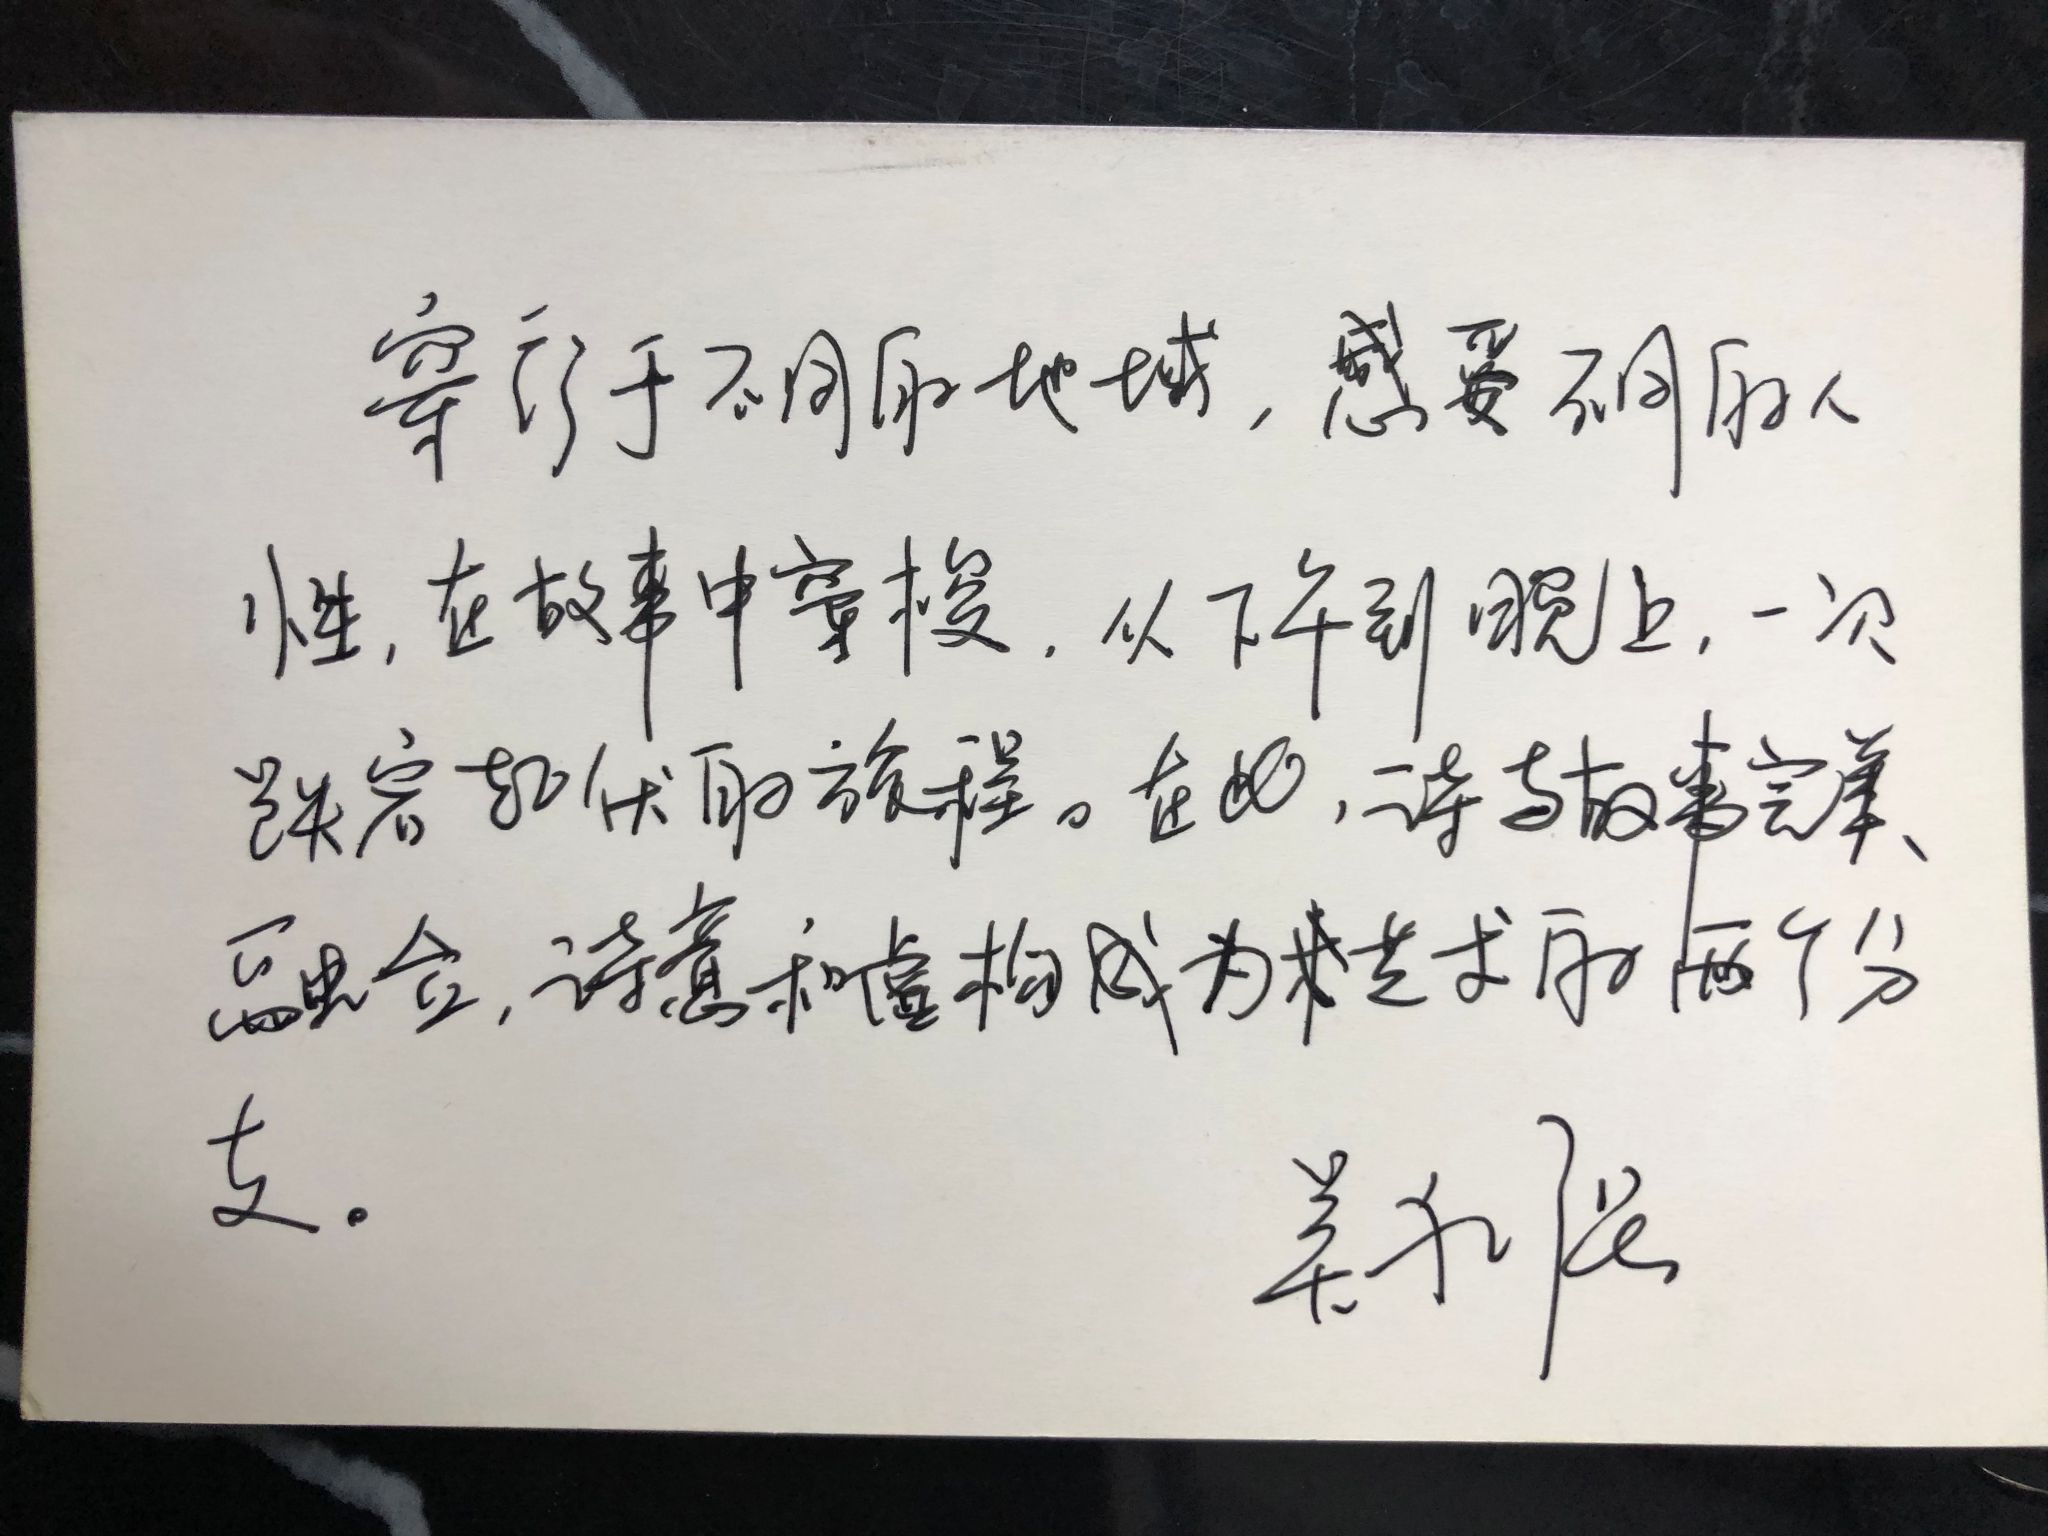 穿行于不同的地域，感受不同的人
性，在故事中穿梭，从下午到晚上，一次
跌宕起伏的旅程。在此，诗与故事完美、
融合，诗意和虚构成为艺术的两个分
支。